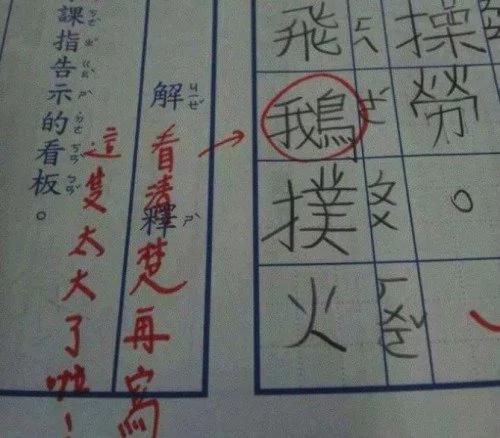 操勞。
飛鵝撲火
解釋
看清楚再寫
這隻太大了啦！
課指告示的看板。